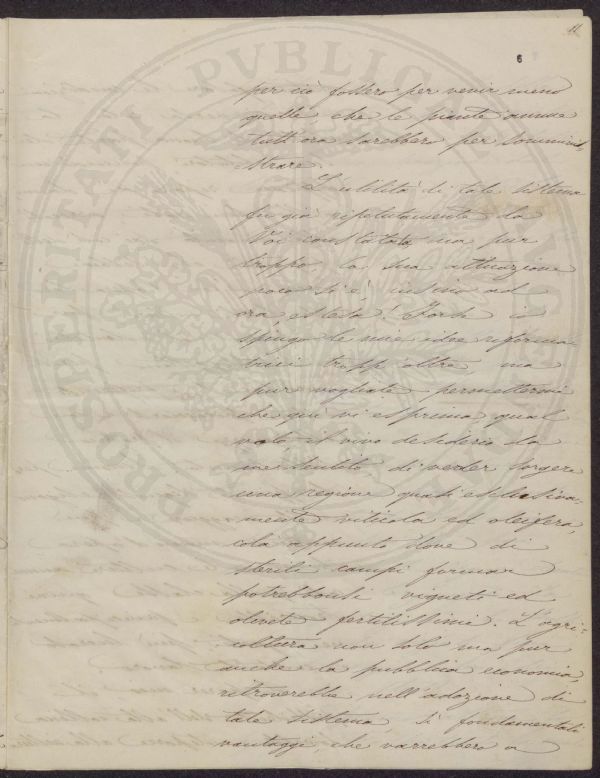 11
6
PROSPERITATI PVBLICAE
per ciò fossero per venir meno
quelle, che le piante annue
tutt'ora sarebbero per sommini-
strare.
L'utilità di tale sistema
fu già ripetutamente da
Voi constatata ma pur
troppo, la sua attuazione
poco si è, insino ad
ora estesa! Forse io
spingo le mie idee riforma-
trici tropp'oltre ma
pur vogliate permettermi
che quì vi esprima qual
voto il vivo desiderio da
me sentito, di veder sorgere
una regione quasi esclusiva-
mente viticola ed oleifera,
colà appunto dove di
sterili campi formar
potrebbonsi vigneti ed
oliveti fertilissimi. L'agri-
coltura non solo ma pur
anche la pubblica economia,
ritroverebbe nell'adozione di
tale sistema, sì fondamentali
vantaggi, che varrebbero a